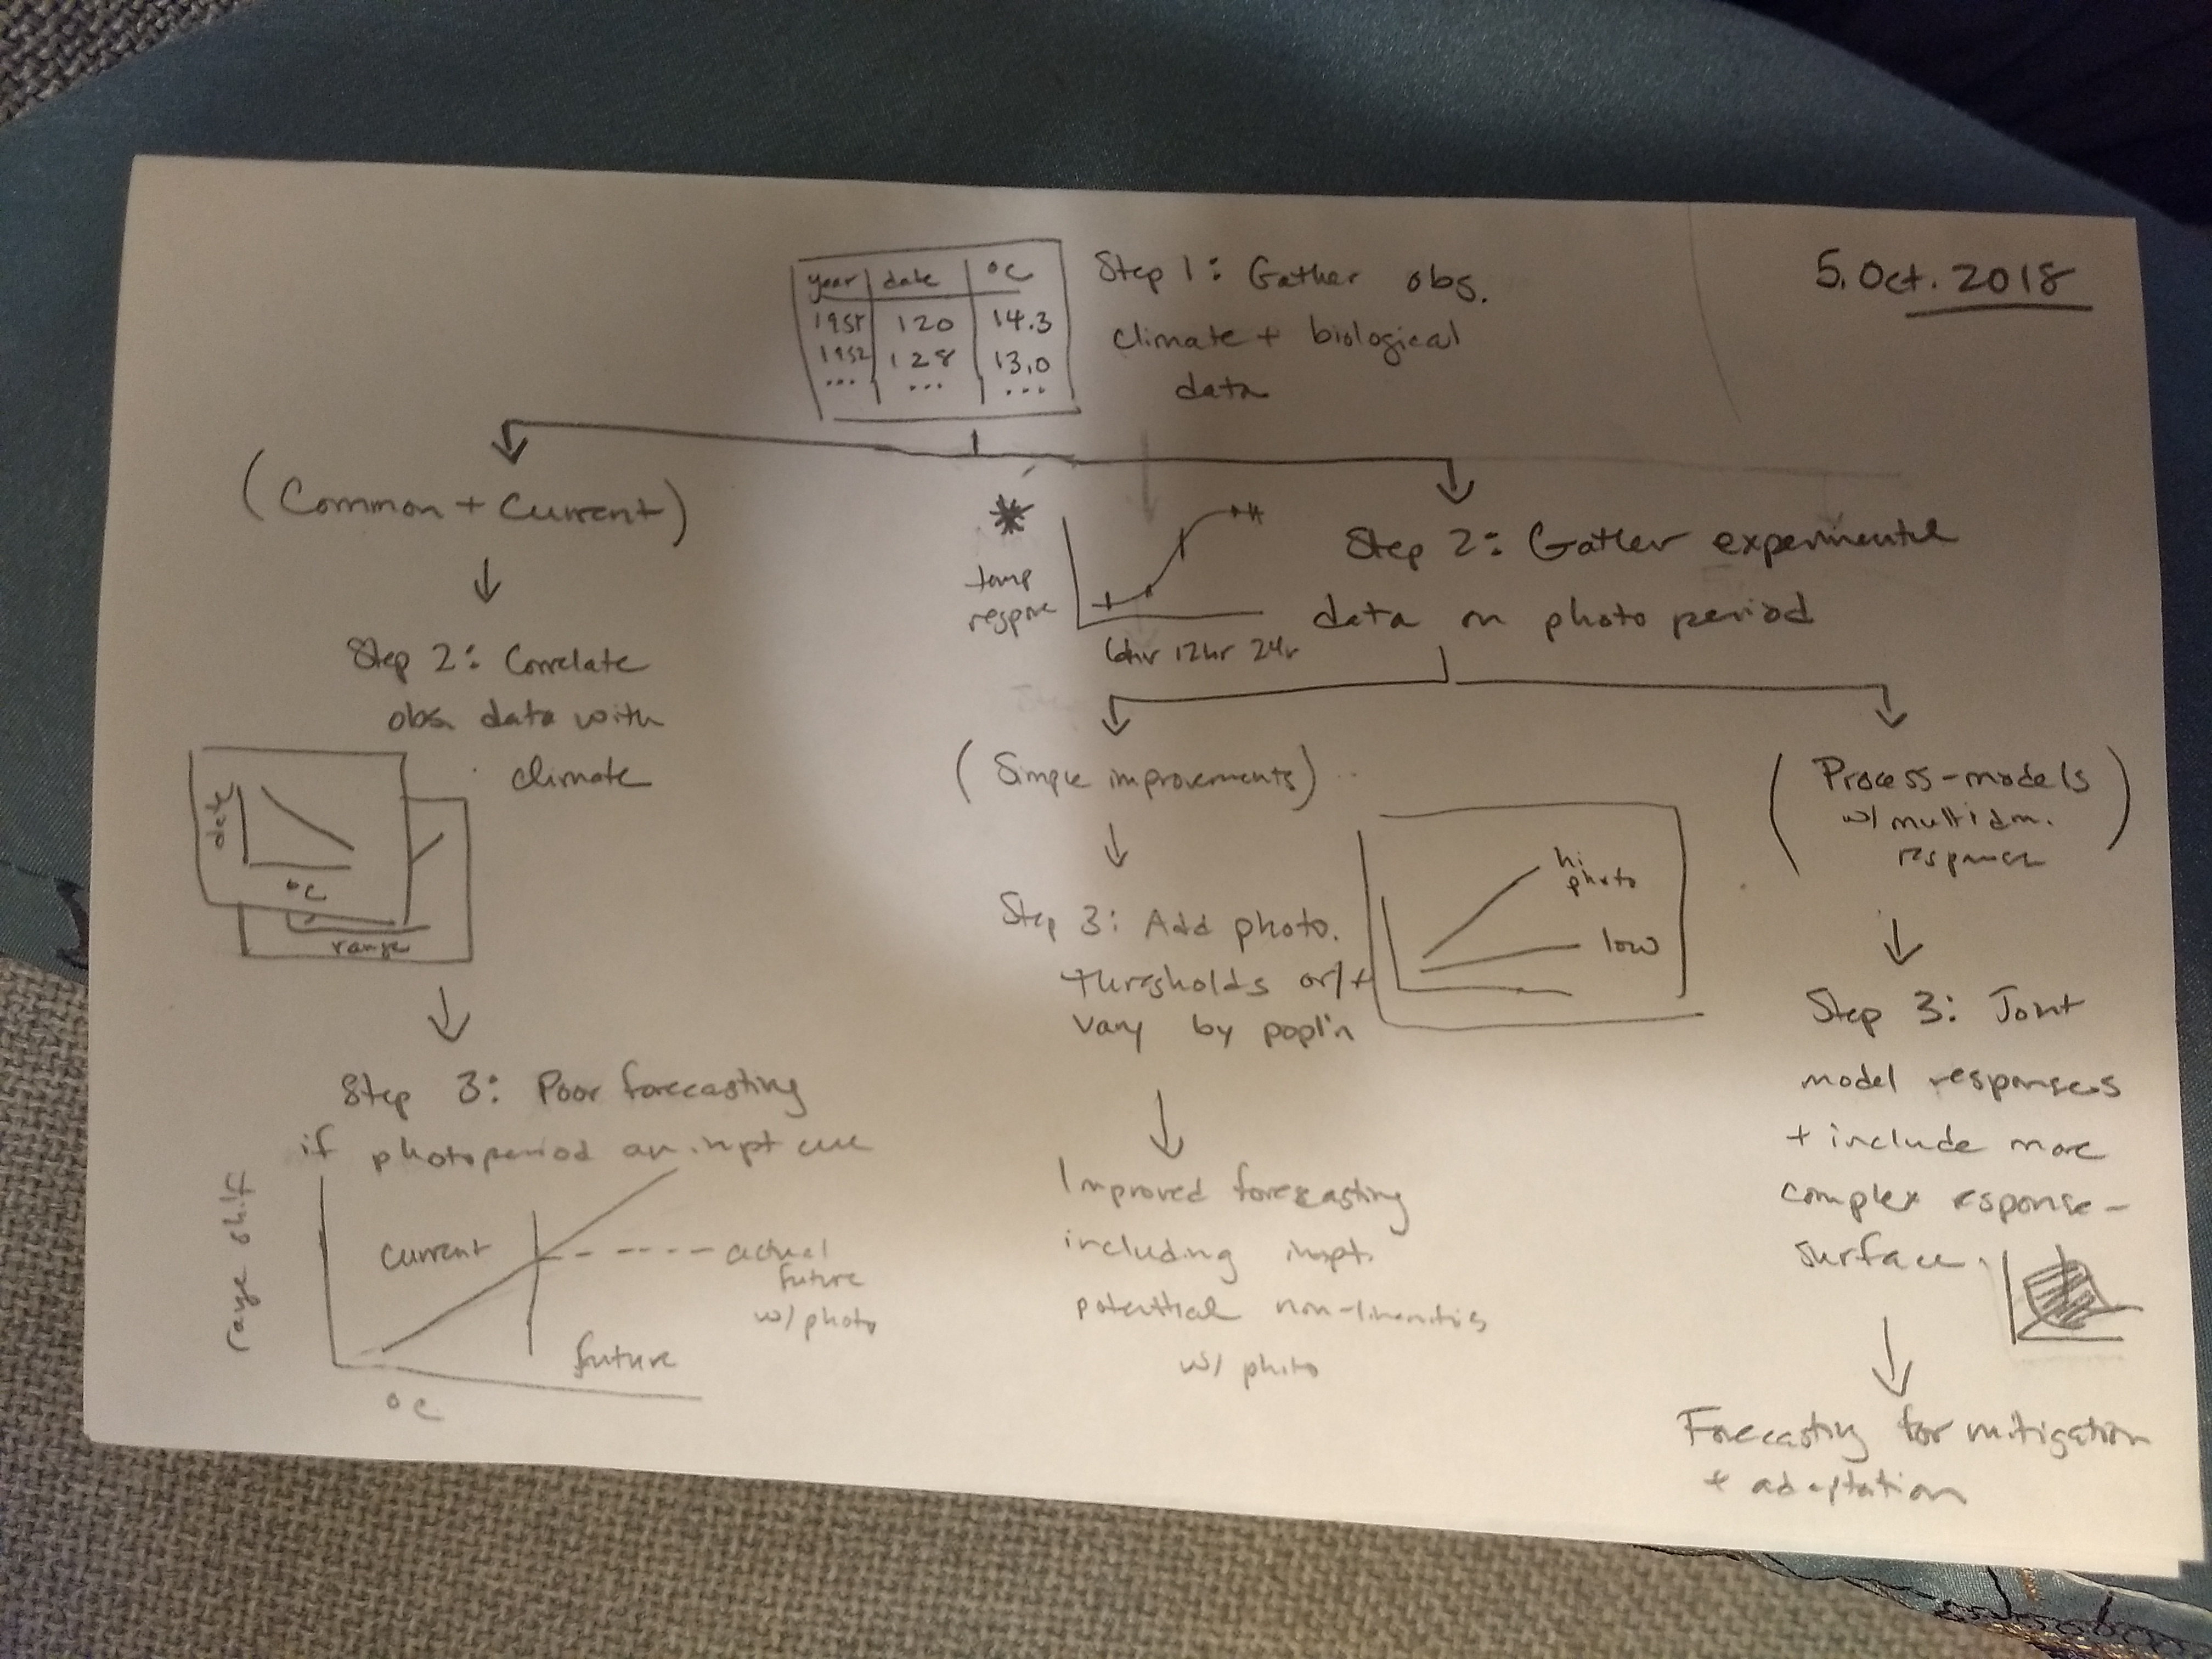 5. Oct. 2018
year date °C
1951 120 14.3
1952 128 13.0
... ... ...
Step 1: Gather obs.
climate + biological
data
(Common + Current)
Step 2: Correlate
obs. data with
climate
date
°C
range
Step 3: Poor forecasting
if photoperiod an impt cue
range shift
current
actual
future
w/ photo
future
°C
temp
6hr 12hr 24r
Step 2: Gather experimental
data on photoperiod
(Simple improvements)
Step 3: Add photo.
thresholds or/+
vary by popl'n
hi
photo
low
Improved forecasting
including impt.
potential non-linearities
w/ photo
(Process-models
w/ multidim.
response)
Step 3: Joint
model responses
+ include more
complex response-
surface.
Forecasting for mitigation
+ adaptation